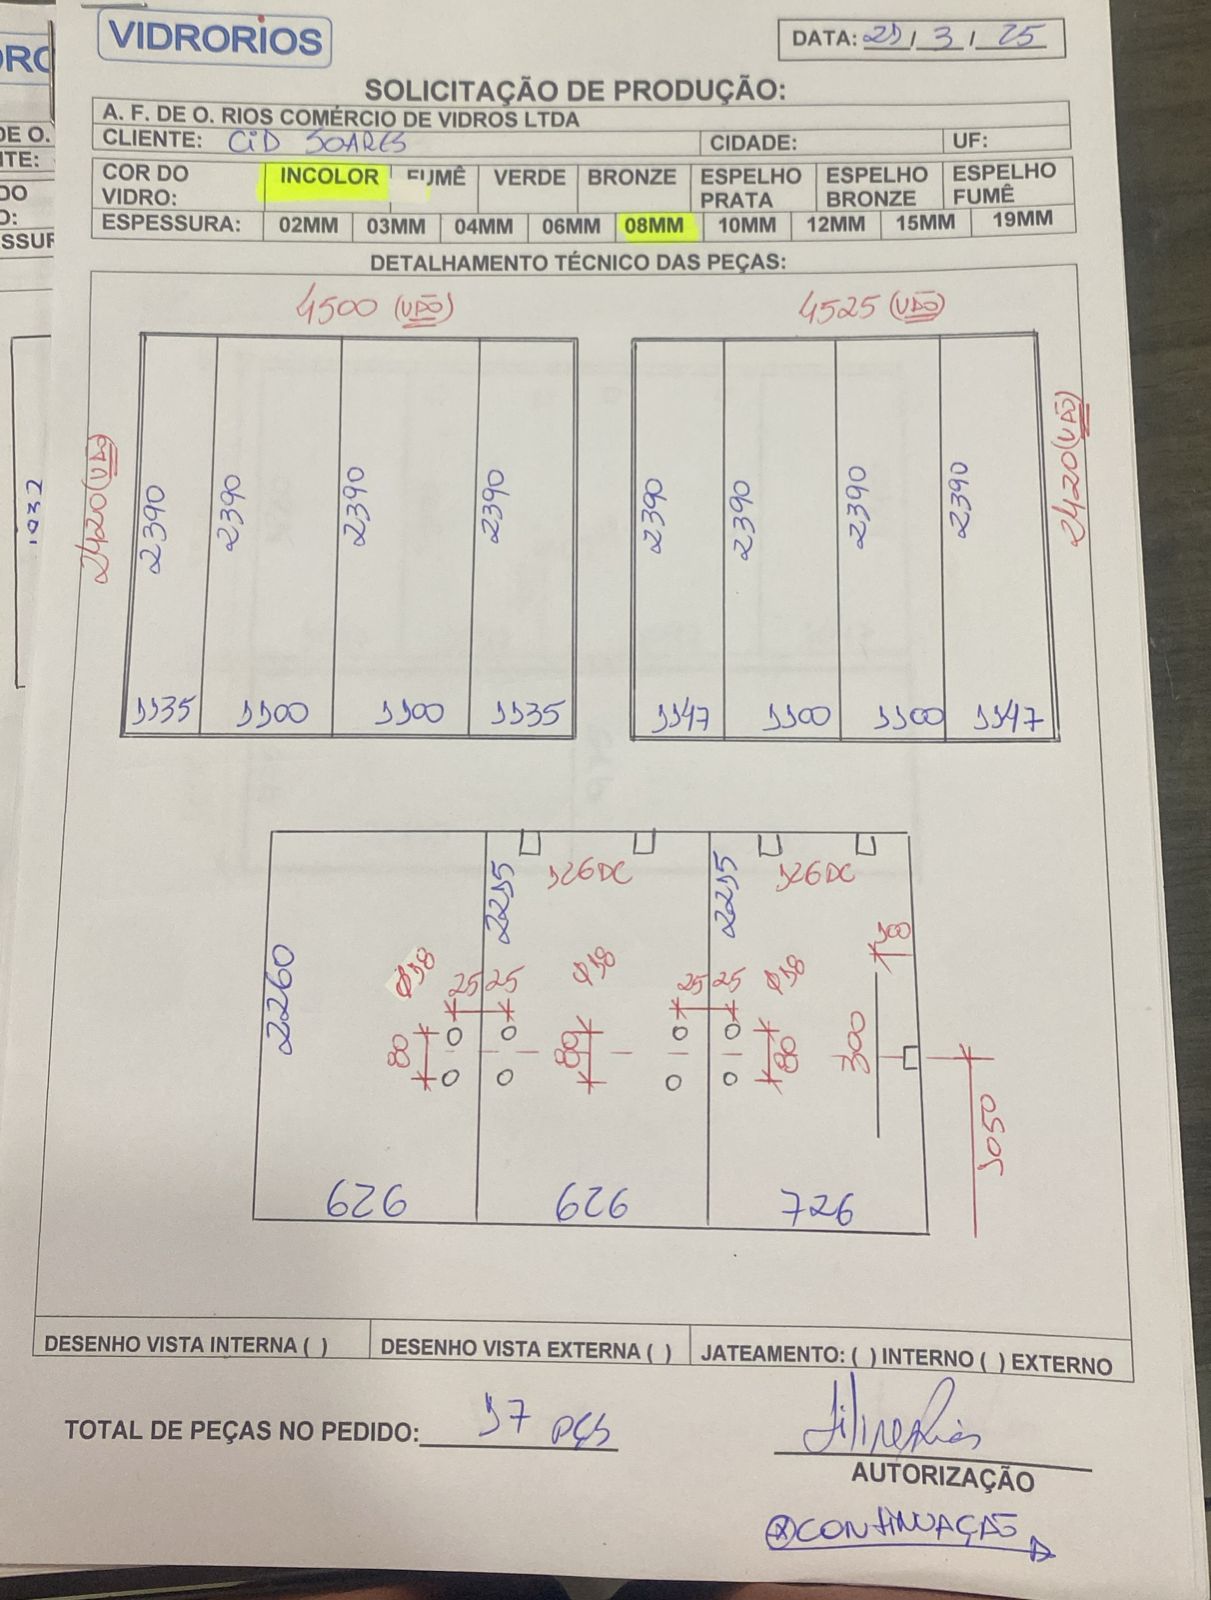 VIDRORIOS
DATA: 21/3/25
SOLICITAÇÃO DE PRODUÇÃO:
A. F. DE O. RIOS COMÉRCIO DE VIDROS LTDA
CLIENTE: CiD SOARES CIDADE: UF:
COR DO VIDRO: INCOLOR FUMÊ VERDE BRONZE ESPELHO PRATA ESPELHO BRONZE ESPELHO FUMÊ
ESPESSURA: 02MM 03MM 04MM 06MM 08MM 10MM 12MM 15MM 19MM
DETALHAMENTO TÉCNICO DAS PEÇAS:
4500 (VÃO) 4525 (VÃO)
2420 (VÃO) 2390 2390 2390 2390 2390 2390 2390 2390 2420 (VÃO)
1135 1100 1100 1135 1147 1100 1100 1147
126DC 126DC
2260 2215 2215
Ø18 Ø18 Ø18 100
25 25 25 25
80 80 80 300
1050
626 626 726
DESENHO VISTA INTERNA ( ) DESENHO VISTA EXTERNA ( ) JATEAMENTO: ( ) INTERNO ( ) EXTERNO
TOTAL DE PEÇAS NO PEDIDO: 17 PÇS
AUTORIZAÇÃO
CONTINUAÇÃO
1032